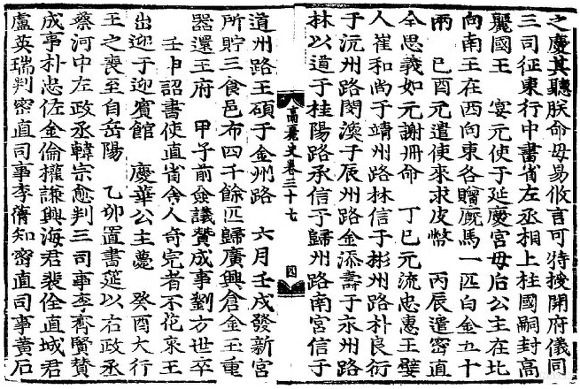 之慶其聽朕命毋易攸言可特授開府儀同
三司征東行中書省左丞相上柱國嗣封高
麗國王 宴元使于延慶宮母后公主在北
向南王在西向東各贈廐馬一匹白金五十
兩 己酉元遣使來求皮幣 丙辰遣密直
全思義如元謝冊命 丁巳元流忠惠王嬖
人崔和尚于靖州路林信于彬州路朴良衍
于沅州路閔渙于辰州路金添壽于永州路
林以道于桂陽路承信于歸州路南宮信于
高麗史卷三十七 四
道州路王碩于金州路 六月壬戌發新宮
所貯三食邑布四千餘匹歸廣興倉金玉重
器還王府 甲子前僉議贊成事劉方世卒
壬申詔書使直省舍人奇完者不花來王
出迎于迎賓館 慶華公主薨 癸酉大行
王之喪至自岳陽 乙卯置書筵以右政丞
蔡河中左政丞韓宗愈判三司事李齊賢贊
成事朴忠佐金倫權謙興海君裴佺直城君
盧英瑞判密直司事李蒨知密直司事黃石